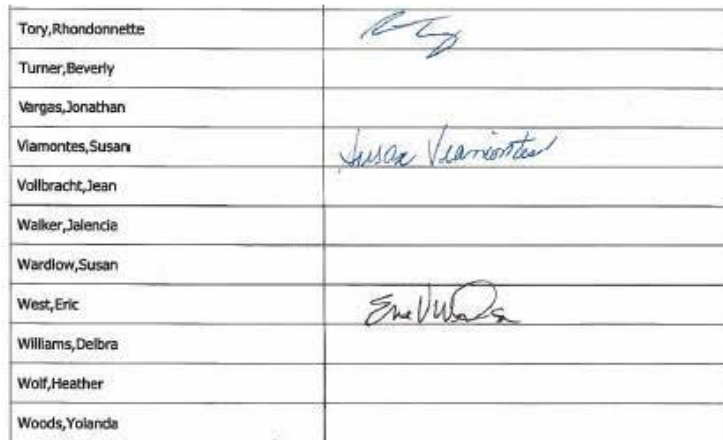 Tory,Rhondonnette
Turner,Beverly
Vargas,Jonathan
Viamontes,Susan Susan Viamontes
Vollbracht,Jean
Walker,Jalencia
Wardlow,Susan
West,Eric
Williams,Delbra
Wolf,Heather
Woods,Yolanda